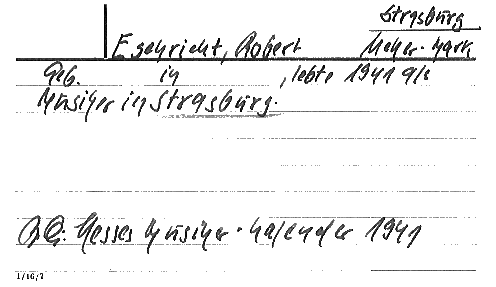 Strasburg
Eschricht, Robert
Ucker-Mark
Geb. in , lebte 1941 als
Musiker in Strasburg.
BQ: Hesses Musiker-Kalender 1941
1/16/7